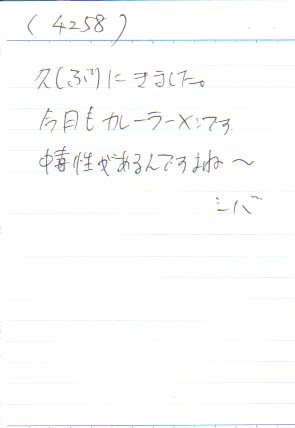 (4258)
久しぶりにきました。
今日もカレーラーメンです
中毒性があるんですよね〜
シバ